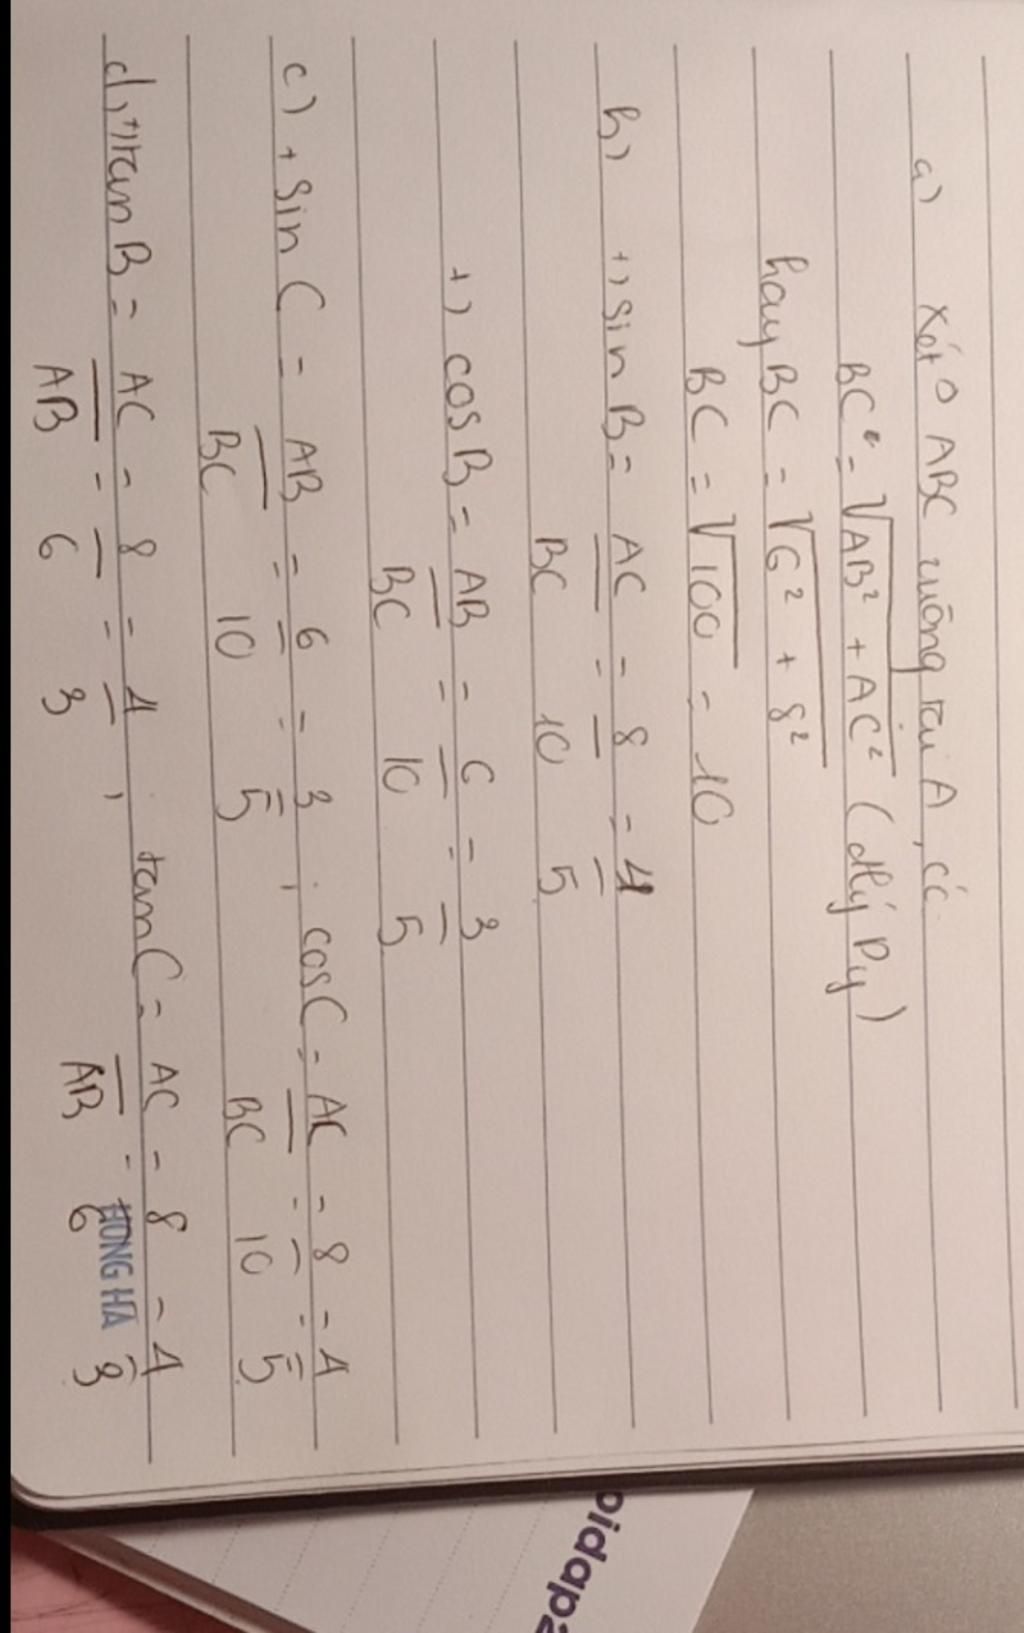 a) Xét △ ABC vuông tại A, có
BC = √AB² + AC² (đlý Py)
hay BC = √6² + 8²
BC = √100 = 10
b) +) sin B = AC/BC = 8/10 = 4/5
+) cos B = AB/BC = 6/10 = 3/5
c) + Sin C = AB/BC = 6/10 = 3/5 , cos C = AC/BC = 8/10 = 4/5
d, +) tan B = AC/AB = 8/6 = 4/3 , tan C = AC/AB = 8/6 = 4/3
HONG HA
oidap2